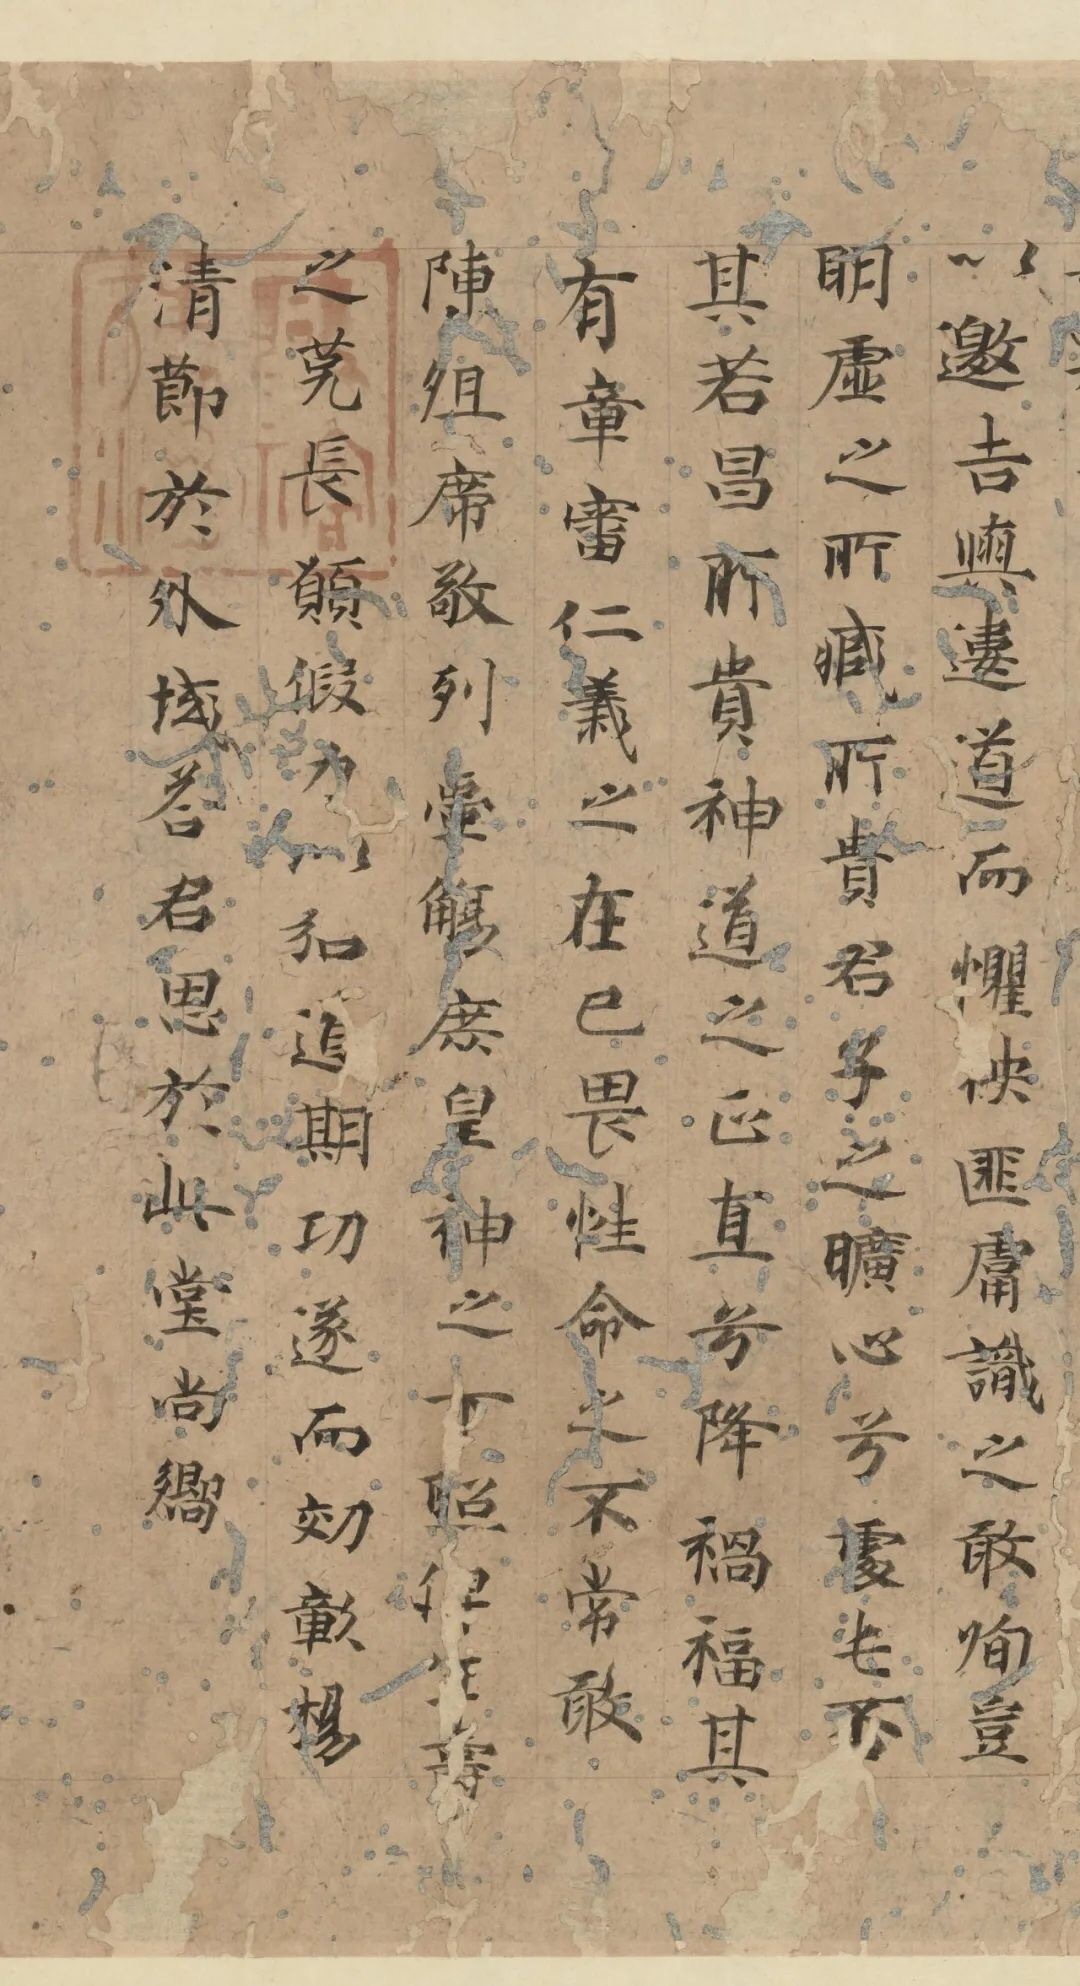 以邀吉興遘道而懼怏匪膚識之敢徇豈
明虛之所臧所貴君子之曠心兮處老不
其若昌所貴神道之正直兮降禍福其
有章審仁義之在已畏性命之不常敢
陳俎席敬列壺觴庶皇神之下照俾生壽
之莞長願假力以弘追期功遂而効彰揚
清節於外域荅君恩於此堂尚饗